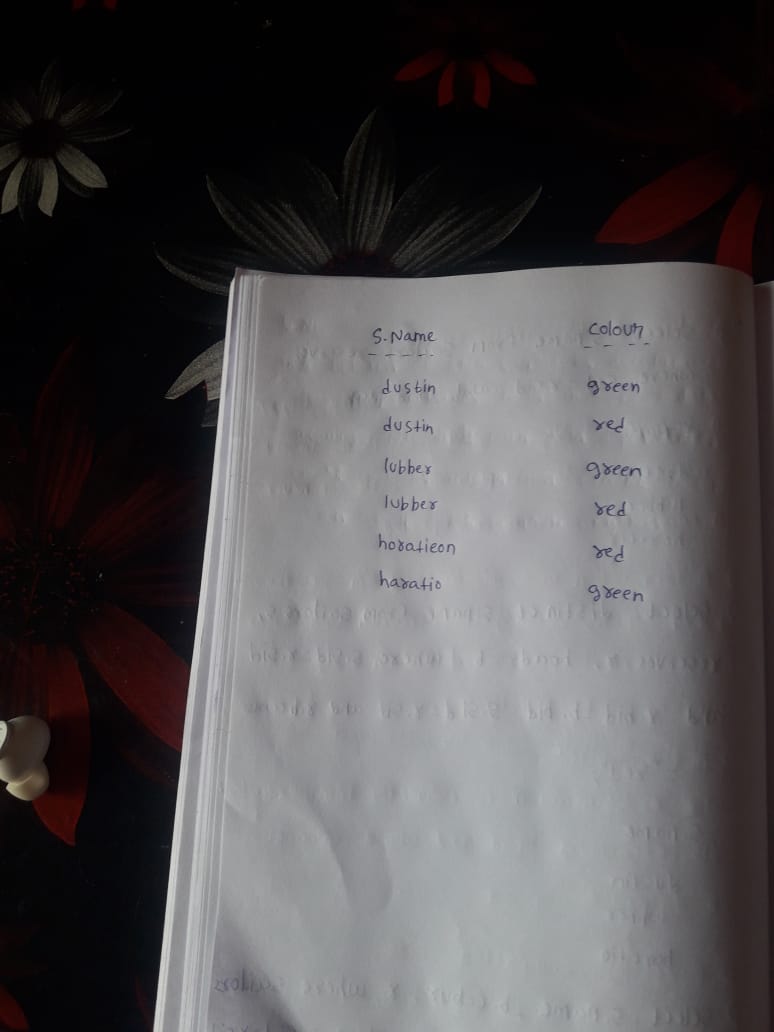 S.Name Colour
dustin green
dustin red
lubber green
lubber red
horatieon red
haratio green